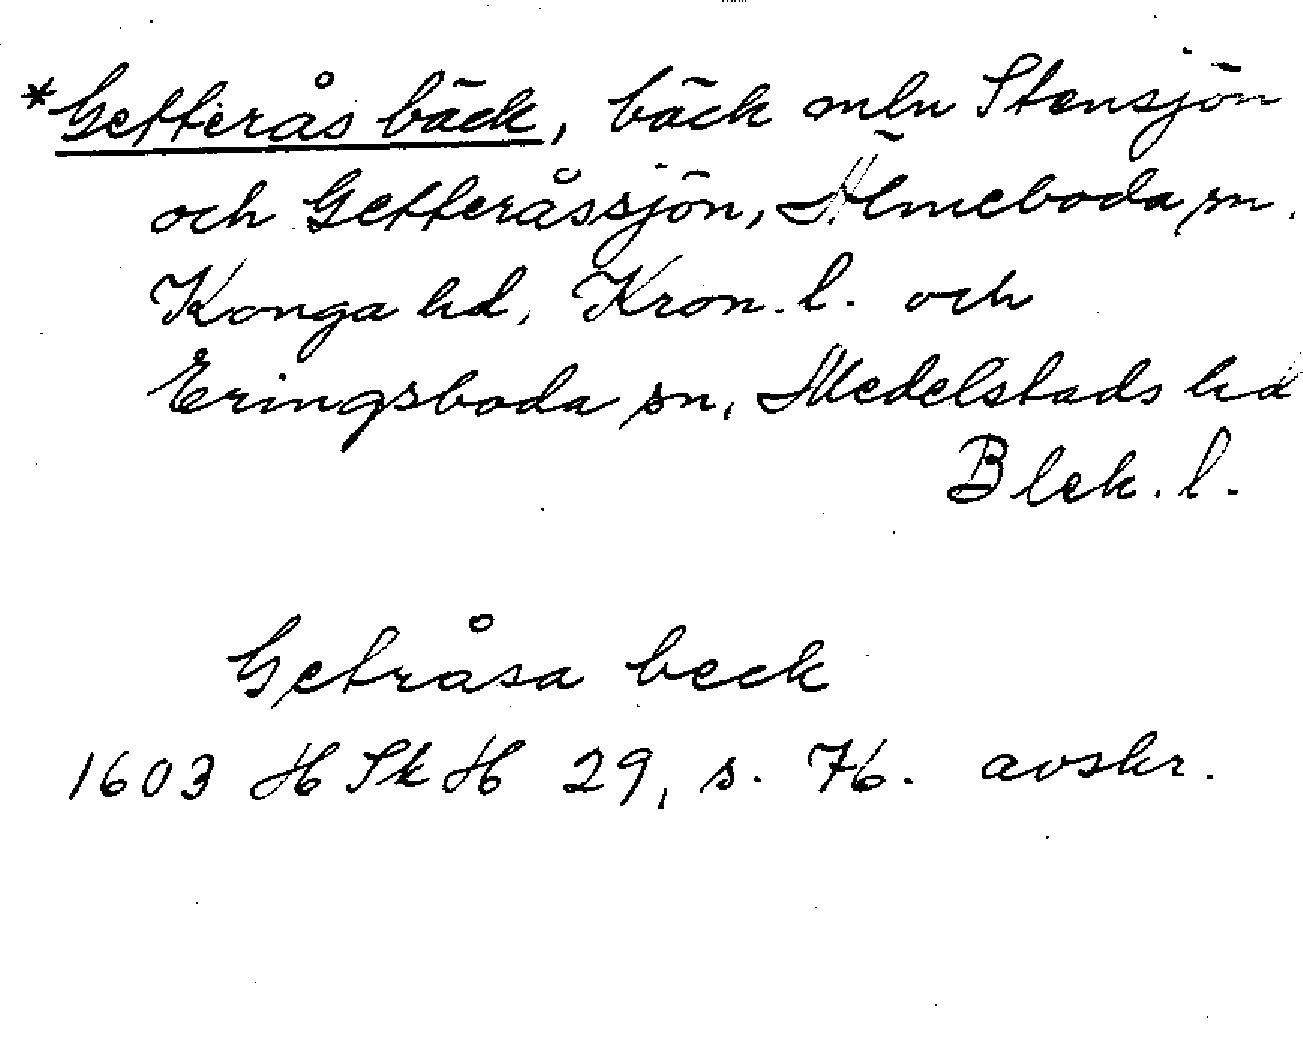 *Getterås bäck, bäck mln Stensjön
och Getteråssjön, Älmeboda sn,
Konga hd, Kron. l. och
Eringsboda sn, Medelstads hd
Blek. l.
Getråsa beck
1603 HSkH 29, s. 76. avskr.